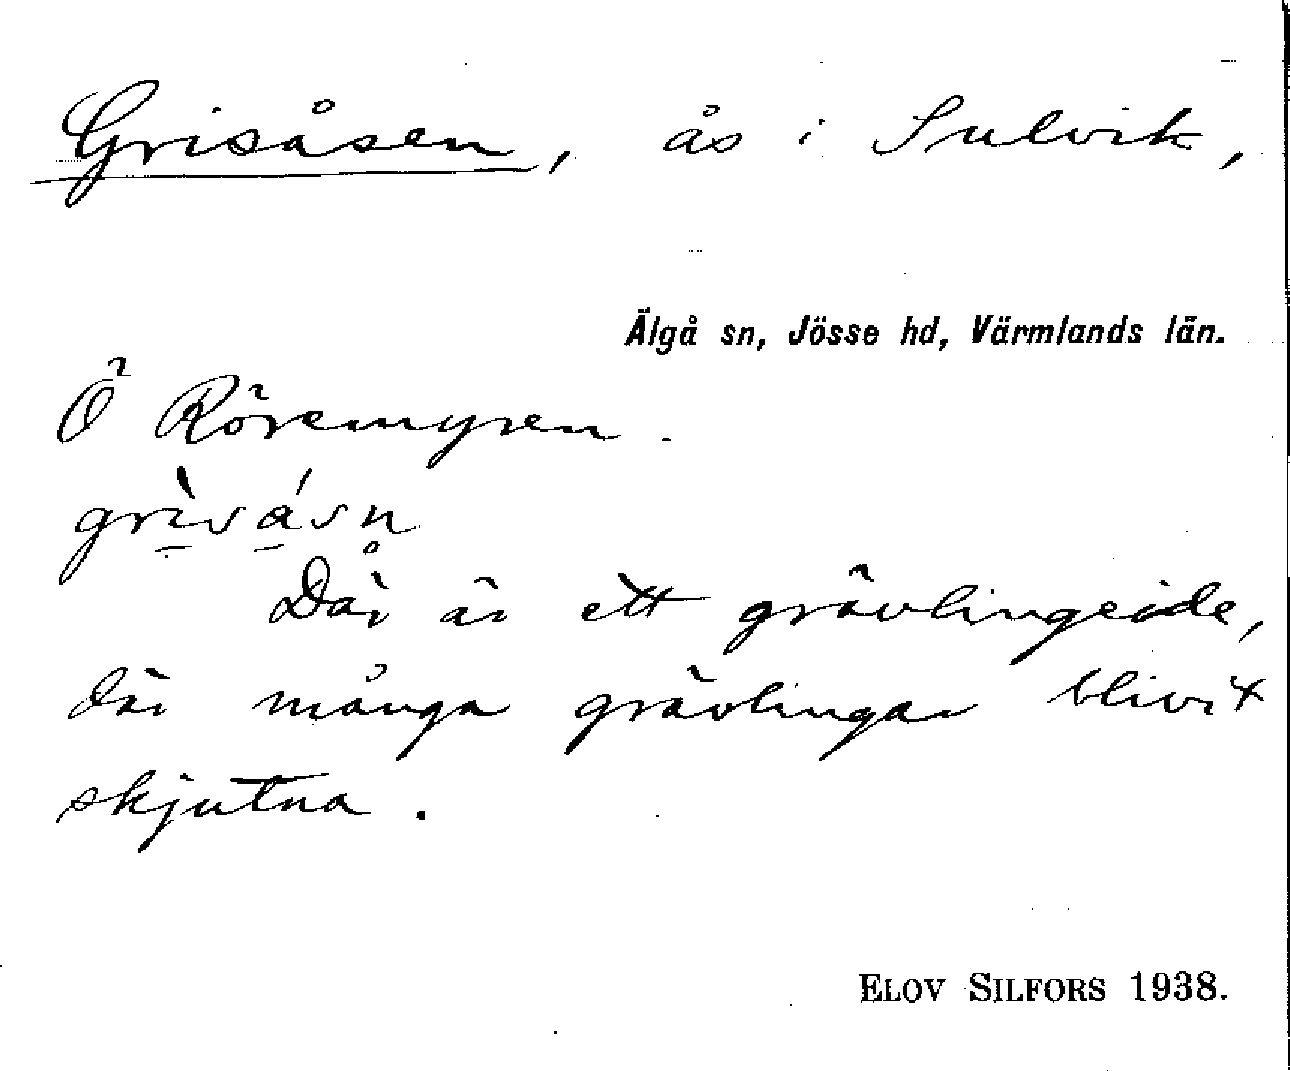 Grisåsen, ås i Sulvik,
Älgå sn, Jösse hd, Värmlands län.
Ö Röremyren.
grìsåsn
Där är ett grävlingeide,
där många grävlingar blivit
skjutna.
ELOV SILFORS 1938.